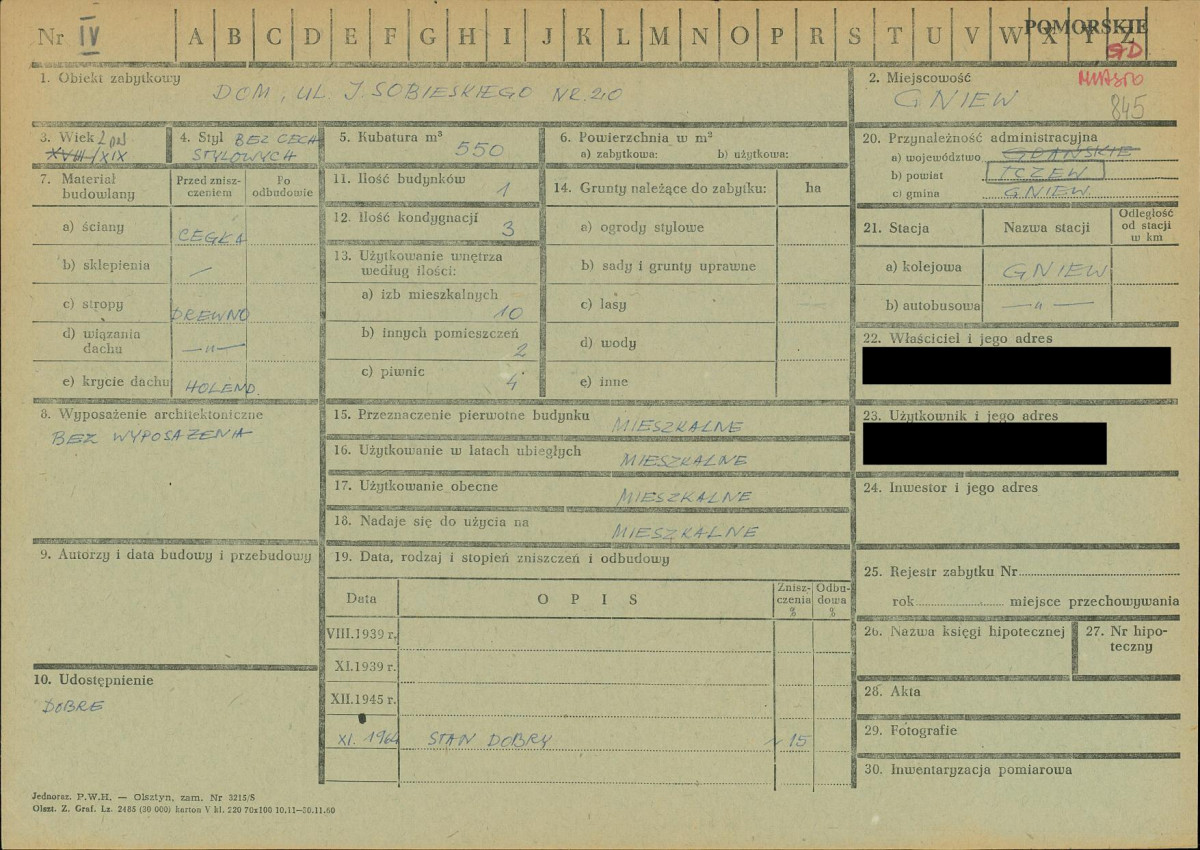 Nr IV A B C D E F G H I J K L M N O P R S T U V W X Y Z
POMORSKIE
MIASTO
845
1. Obiekt zabytkowy
DOM, UL. J. SOBIESKIEGO NR. 20
2. Miejscowość
GNIEW
3. Wiek 2 poł
XVIII/XIX
4. Styl BEZ CECH
STYLOWYCH
5. Kubatura m³
550
6. Powierzchnia w m²
a) zabytkowa: b) użytkowa:
7. Materiał
budowlany
Przed znisz-
czeniem
Po
odbudowie
a) ściany CEGŁA
b) sklepienia —
c) stropy DREWNO
d) wiązania
dachu —„—
e) krycie dachu HOLEND.
8. Wyposażenie architektoniczne
BEZ WYPOSAŻENIA
9. Autorzy i data budowy i przebudowy
10. Udostępnienie
DOBRE
11. Ilość budynków 1
12. Ilość kondygnacji 3
13. Użytkowanie wnętrza
według ilości:
a) izb mieszkalnych
10
b) innych pomieszczeń
2
c) piwnic 4
14. Grunty należące do zabytku: ha
a) ogrody stylowe
b) sady i grunty uprawne
c) lasy
d) wody
e) inne
15. Przeznaczenie pierwotne budynku MIESZKALNE
16. Użytkowanie w latach ubiegłych MIESZKALNE
17. Użytkowanie obecne MIESZKALNE
18. Nadaje się do użycia na MIESZKALNE
19. Data, rodzaj i stopień zniszczeń i odbudowy
Data O P I S
Znisz-
czenia
%
Odbu-
dowa
%
VIII.1939 r.
XI.1939 r.
XII.1945 r.
XI. 1964 STAN DOBRY ~ 15
20. Przynależność administracyjna
a) województwo GDAŃSKIE
b) powiat TCZEW
c) gmina GNIEW
21. Stacja Nazwa stacji
Odległość
od stacji
w km
a) kolejowa GNIEW
b) autobusowa —„—
22. Właściciel i jego adres
23. Użytkownik i jego adres
24. Inwestor i jego adres
25. Rejestr zabytku Nr
rok miejsce przechowywania
26. Nazwa księgi hipotecznej
27. Nr hipo-
teczny
28. Akta
29. Fotografie
30. Inwentaryzacja pomiarowa
Jednoraz. P.W.H. — Olsztyn, zam. Nr 3215/S
Olszt. Z. Graf. Lz. 2485 (30 000) karton V kl. 220 70x100 10.11—30.11.60